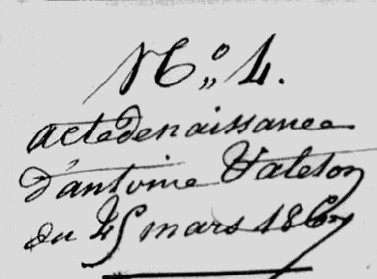 No. 4.
acte de naissance
d'antoine Valeton
du mars